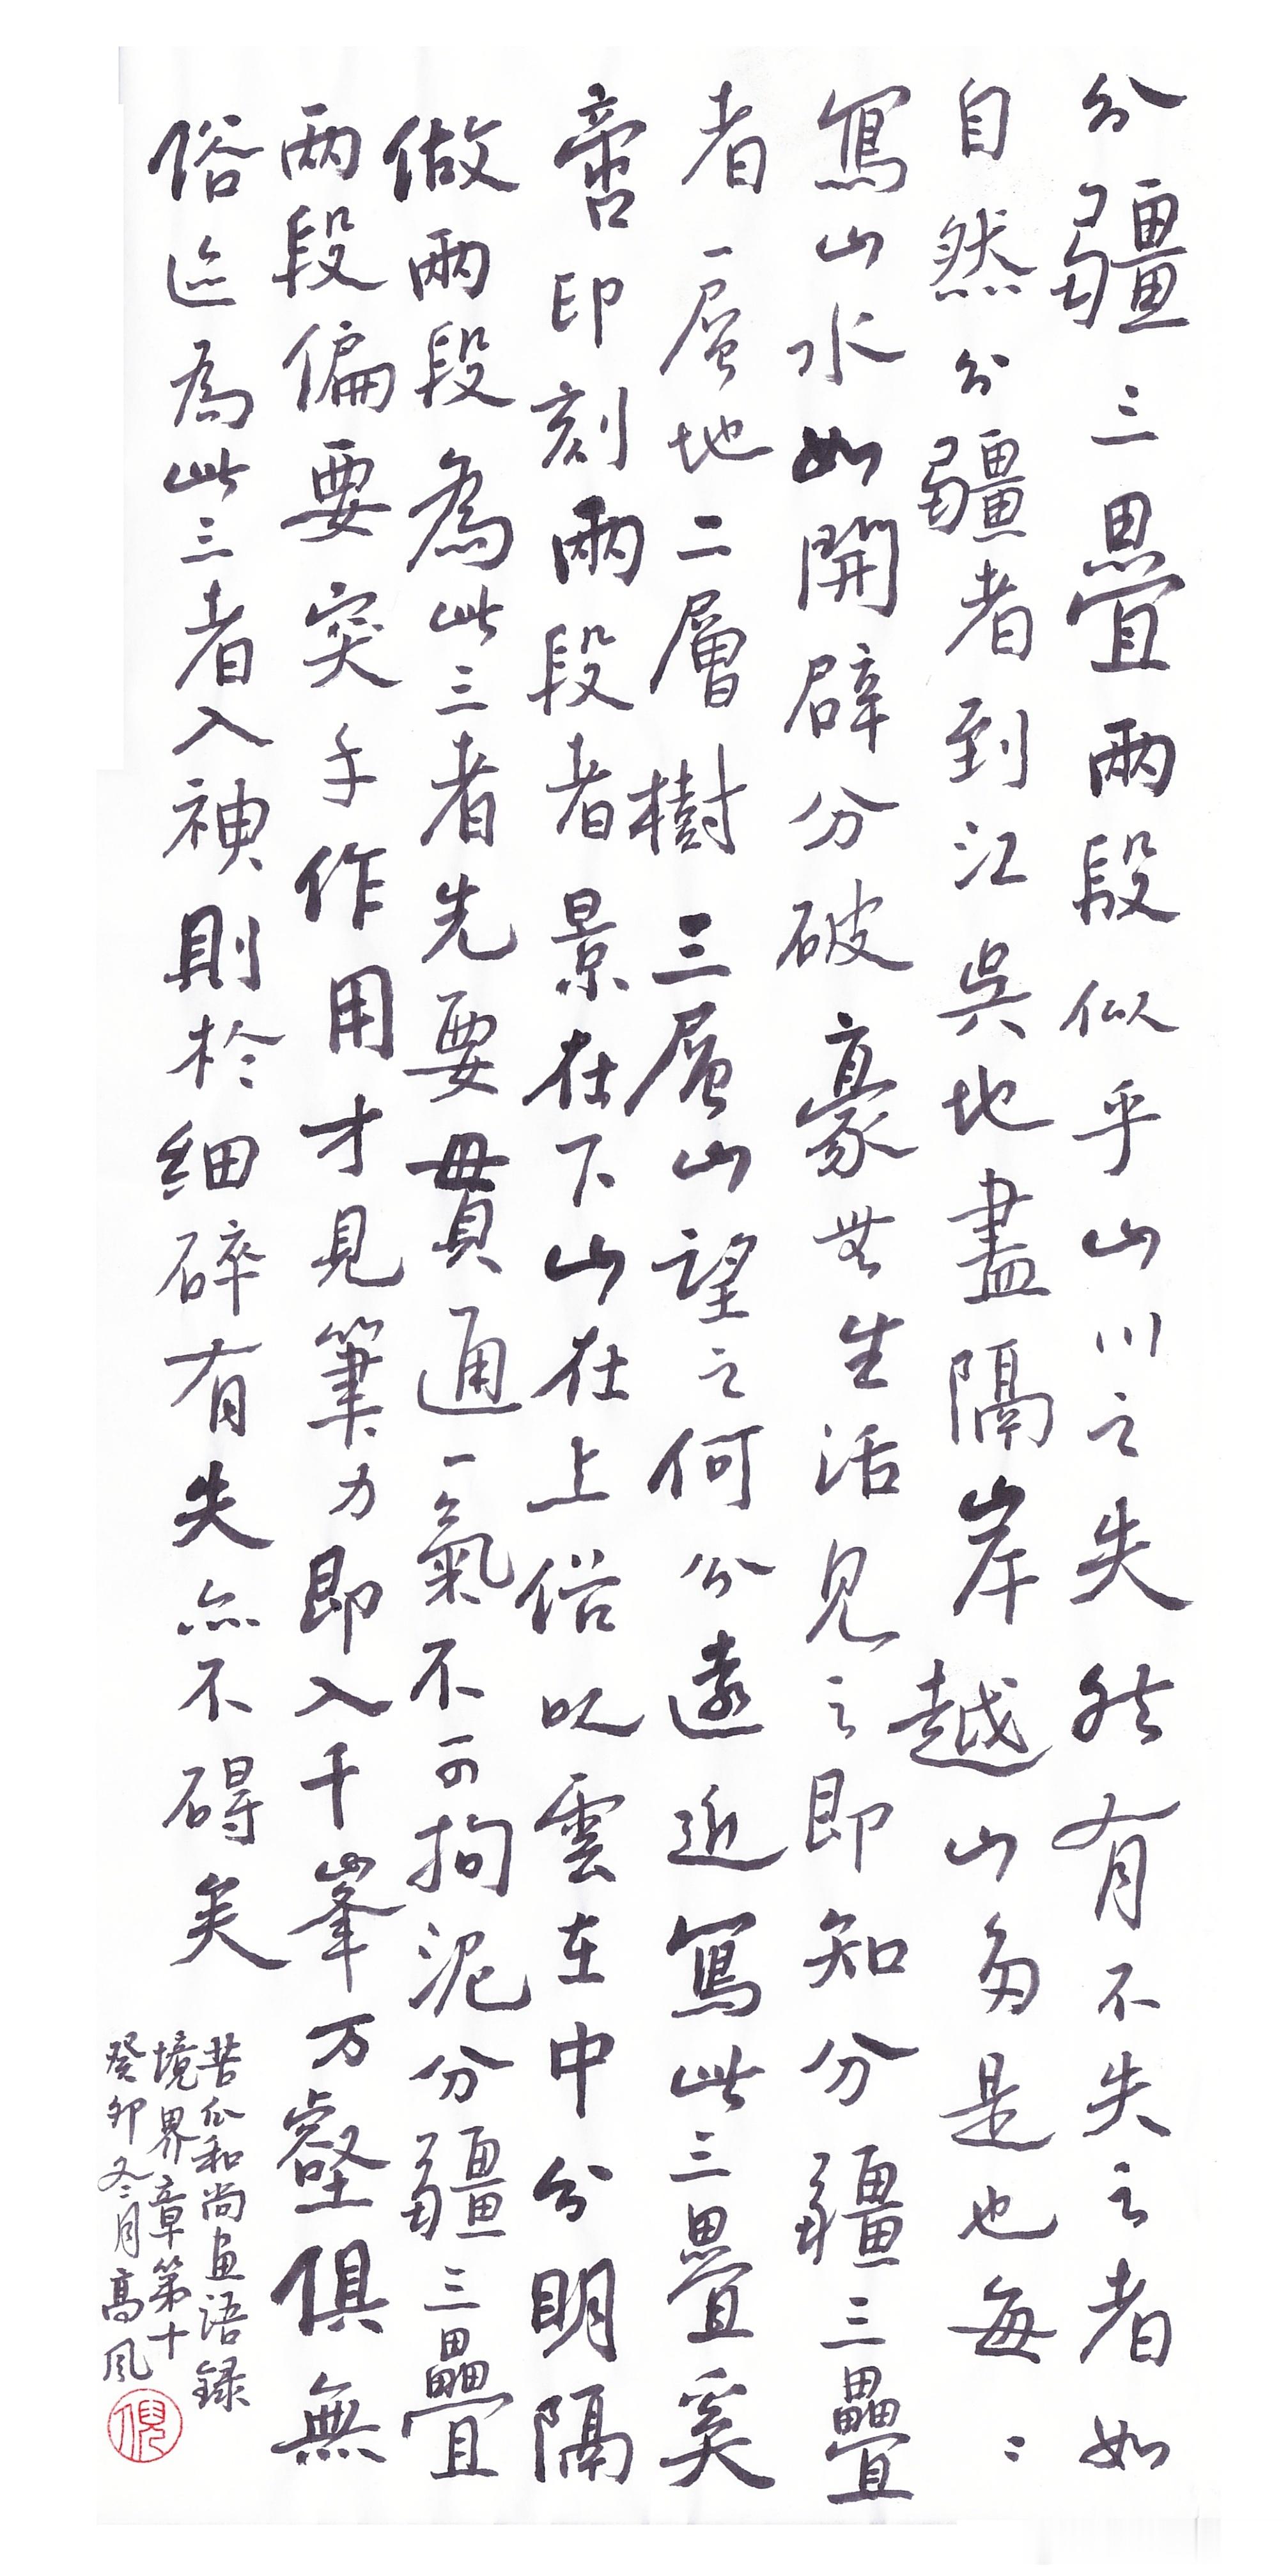 分疆三疊兩段似乎山川之失然有不失之者如
自然分疆者到江吳地盡隔岸越山多是也每〻
寫山水如開闢分破毫無生活見之即知分疆三疊
者一層地二層樹三層山望之何分遠近寫此三疊奚
啻印刻兩段者景在下山在上俗以雲在中分明隔
做兩段為此三者先要貫通一氣不可拘泥分疆三疊
兩段偏要突手作用才見筆力即入千峯万壑俱無
俗迹為此三者入神則於細碎有失亦不碍矣
苦瓜和尚画语録
境界章第十
癸卯冬月高风
倪